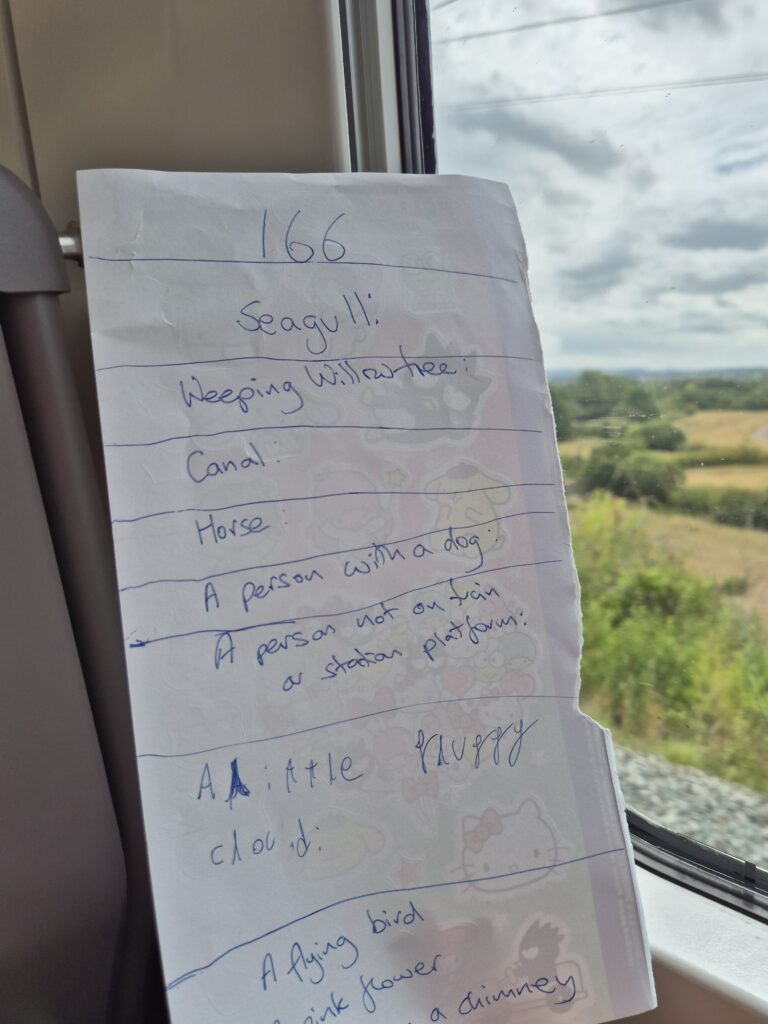 166
Seagull:
Weeping Willowtree:
Canal:
Horse:
A person with a dog:
A person not on train
or station platform:
A little fluffy
cloud:
A flying bird
pink flower
a chimney